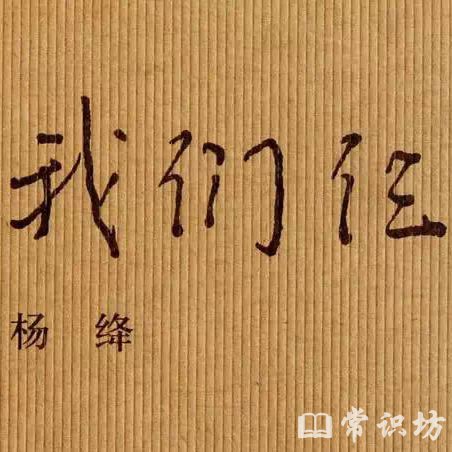 我们仨
杨绛
常识坊